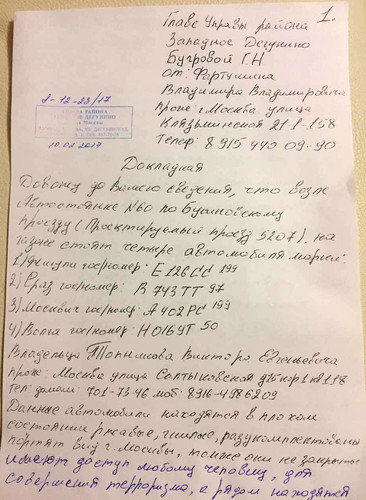 1.
Главе Управы района
Западное Дегунино
Бугровой Г.Н
от: Фартушина
Владимира Владимировича
прож: г. Москва улица
Клязьминская 21-1-158
Телеф: 8 915 440 09-90
2-12-23/17
РАЙОНА
ДЕГУНИНО
Москвы
10.02.2017
Докладная
Довожу до Вашего сведения, что возле
Автостоянке №60 по Бусиновскому
проезду (Проектируемый проезд 5207), на
газоне стоят четыре автомобиля марки:
1) гос/номер: Е126СС 199
2) гос/номер: В 743 ТТ 97
3) Москвич гос/номер: А 402 РС 199
4) Волга гос/номер: Н 016 УТ 50
Владельца Викторо Евгеньевича
прож: Москва улица Салтыковская
тел: домаш: 701-73-46 моб: 8916-4986209
Данные автомобили находятся в плохом
состоянии ржавые, гнилые, разукомплектованы
портят вид г. Москвы, также они не закрыты
имеют доступ любому человеку, для
совершения терроризма, а рядом находятся